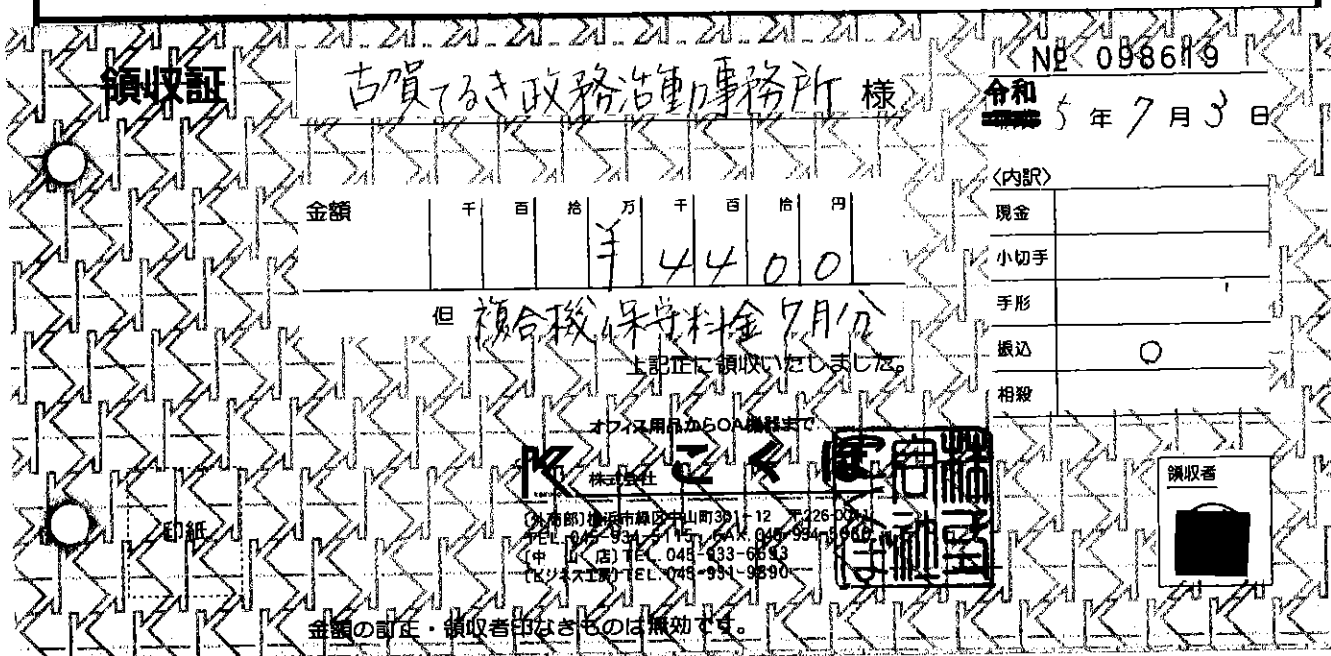 領収証
古賀てるき政務活動事務所 様
№ 098619
令和 5 年 7 月 3 日
金額 千 百 拾 万 千 百 拾 円
¥ 4 4 0 0
但 複合機保守料金 7月分
上記正に領収いたしました。
〈内訳〉
現金
小切手
手形
振込 ○
相殺
オフィス用品からOA機器まで
K 株式会社 こくぼ
(外商部)横浜市緑区中山町301-12 〒226-00
TEL.045-934-5115 FAX.045-934-
(中山店)TEL.045-933-6693
(ビジネス工房)TEL.045-931-9890
領収者
印紙
金額の訂正・領収者印なきものは無効です。